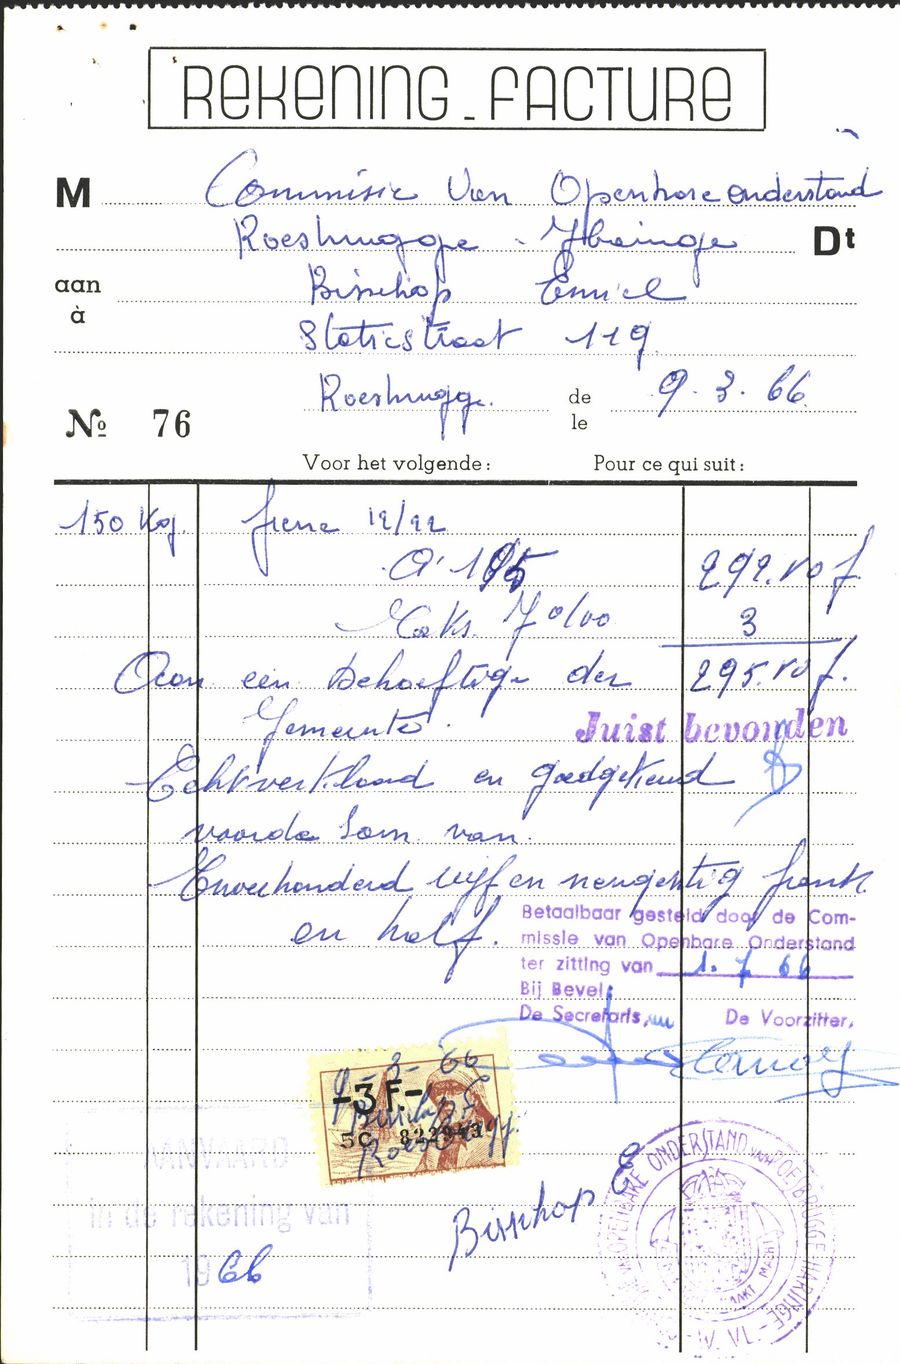 REKENING - FACTURE
M Commissie Van Openbare onderstand
Roesbrugge - Dt
aan Bisschop Emiel
à Statiestraat 119
Roesbrugge. de 9. 3. 66
№ 76 le
Voor het volgende: Pour ce qui suit:
150 Kg. 12/22
a 195 292.50 f
Taks 7 0/00 3
Aan een behoeftige der 295.50 f.
Gemeente.
Juist bevonden
Echtverklaard en goedgekeurd
voor de som van.
Tweehonderd vijf en negentig frank
en half.
Betaalbaar gesteld door de Com-
missie van Openbare Onderstand
ter zitting van 1. 7 66
Bij Bevel:
De Secretaris, De Voorzitter,
9-3-66
-3 F.-
Bisschop E
5C 822943
Roesbrugge
AANVAARD
in de rekening van
1966
Bisschop E
OPENBARE ONDERSTAND VAN ROESBRUGGE-HARINGE - W. VL. -
MAAKT MACHT